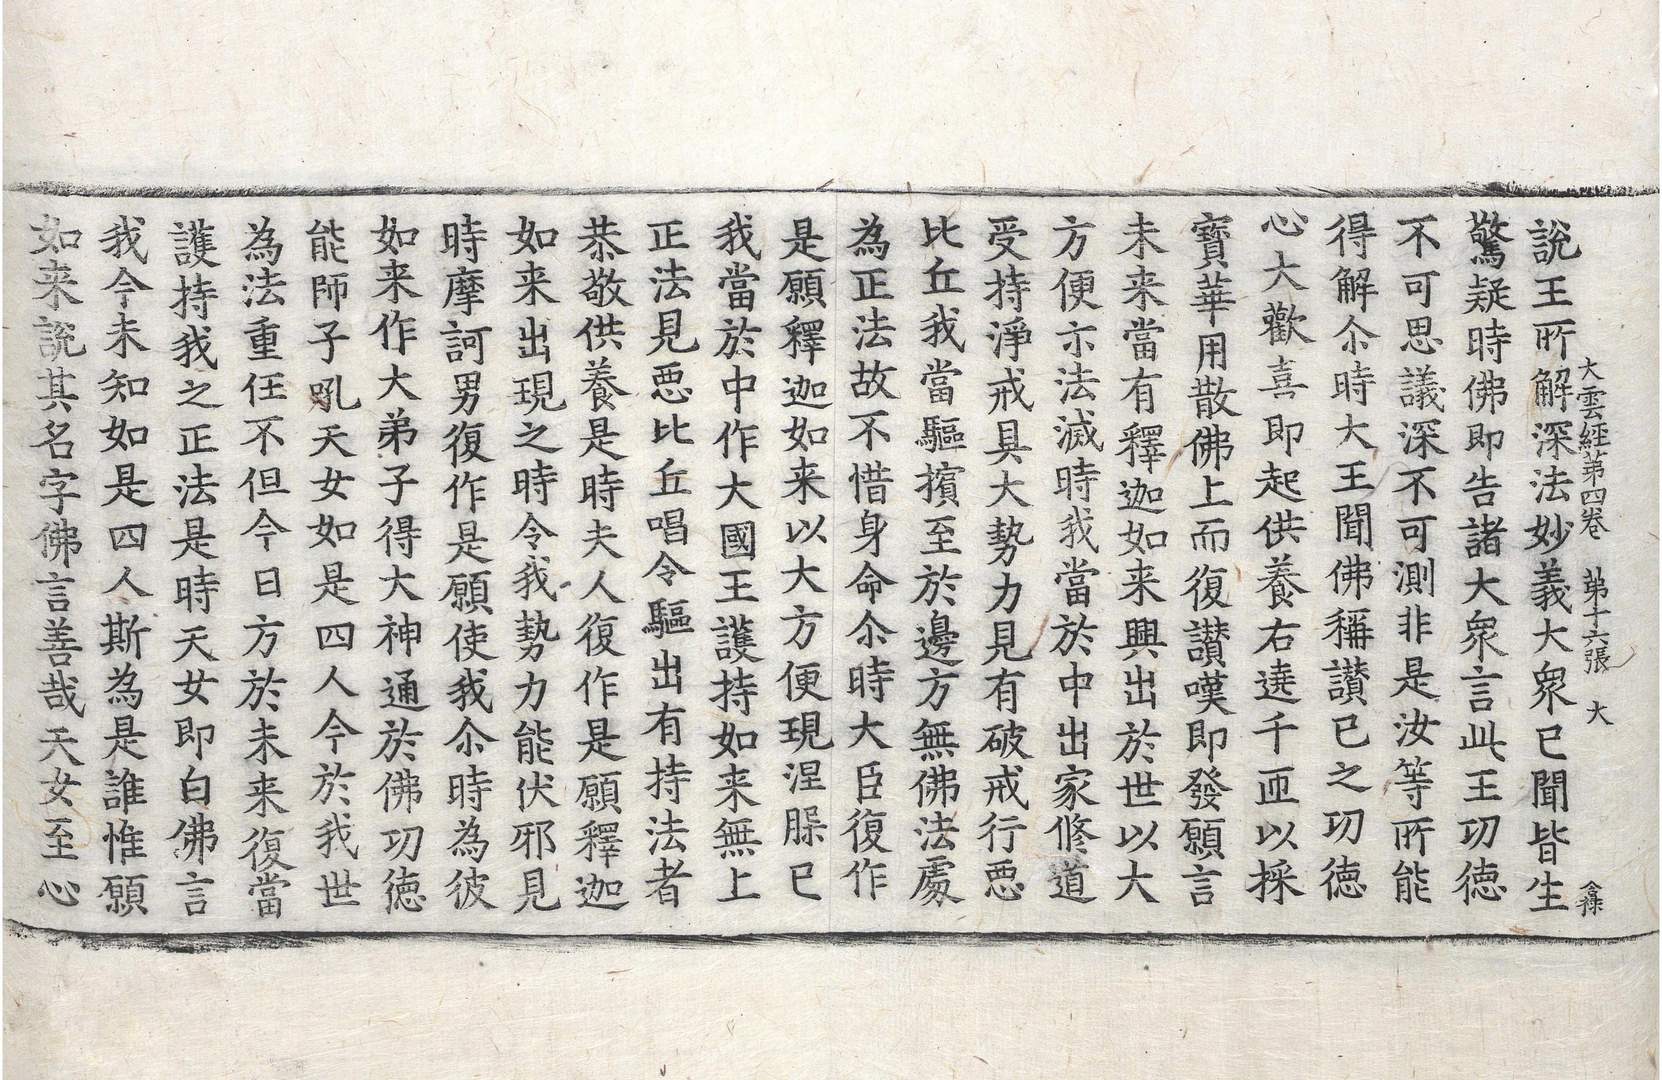 大雲經第四卷 第十六張 大
說王所解深法妙義大衆已聞皆生
驚疑時佛即告諸大衆言此王功徳
不可思議深不可測非是汝等所能
得解尒時大王聞佛稱讃已之功徳
心大歡喜即起供養右遶千匝以採
寳華用散佛上而復讃嘆即發願言
未来當有釋迦如来興出於世以大
方便示法滅時我當於中出家修道
受持淨戒具大勢力見有破戒行惡
比丘我當驅擯至於邊方無佛法處
為正法故不惜身命尒時大臣復作
是願釋迦如来以大方便現涅槃已
我當於中作大國王護持如来無上
正法見惡比丘唱令驅出有持法者
恭敬供養是時夫人復作是願釋迦
如来出現之時令我勢力能伏邪見
時摩訶男復作是願使我尒時為彼
如来作大弟子得大神通於佛功徳
能師子吼天女如是四人今於我世
為法重任不但今日方於未来復當
護持我之正法是時天女即白佛言
我今未知如是四人斯為是誰惟願
如来說其名字佛言善哉天女至心